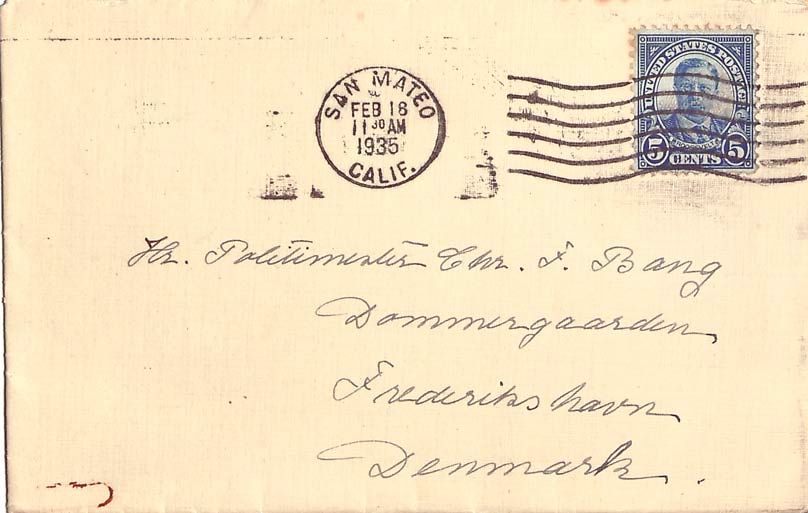 SAN MATEO
FEB 18
11 30 AM
1935
CALIF.
UNITED STATES POSTAGE
5 CENTS 5
Hr. Politimester Chr. F. Bang
Dommergaarden
Frederikshavn
Denmark.